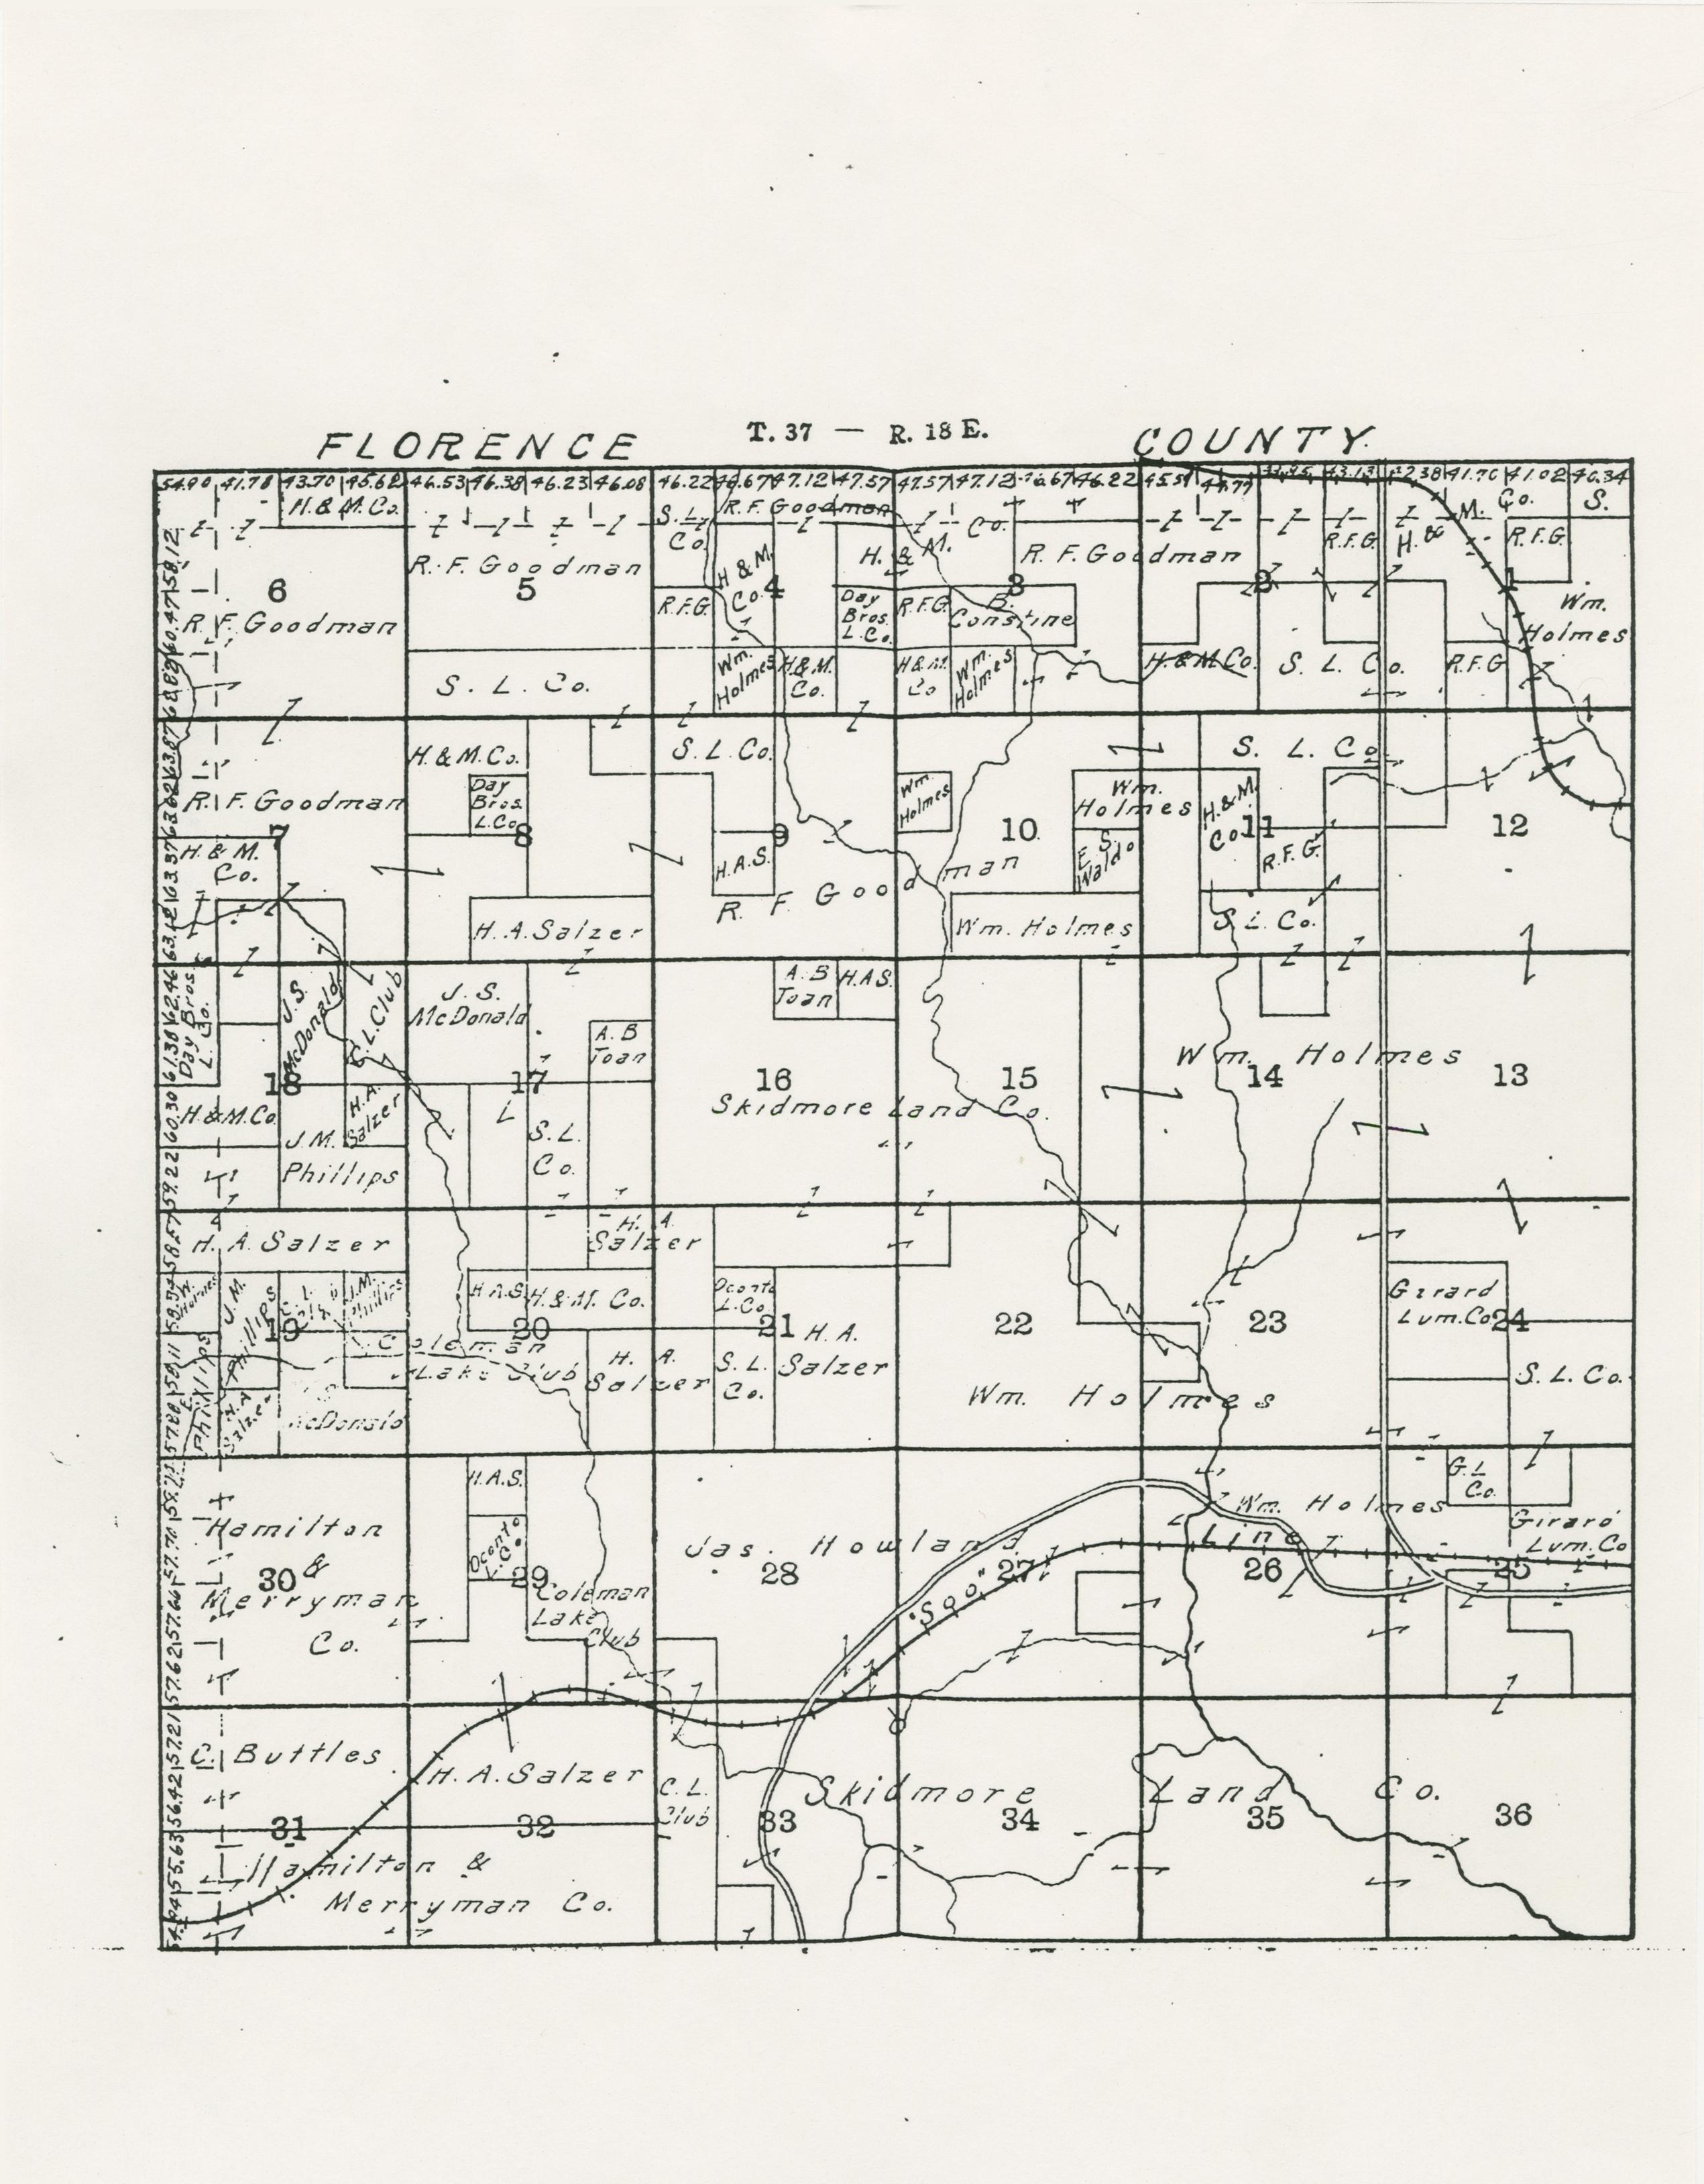 FLORENCE T. 37 — R. 18 E. COUNTY
54.90 41.78 43.70 45.62 46.53 46.38 46.23 46.08 46.22 46.67 47.12 47.57 47.57 47.12 46.67 46.22 45.51 43.13 42.38 41.70 41.02 40.34
H. & M. Co.
R. F. Goodman
S. L. Co.
Co.
H. & M. Co.
S.
6
R. F. Goodman
5
R. F. Goodman
S. L. Co.
R.F.G.
H & M. Co.
4
H. & M.
Day Bros. L. Co.
Wm. Holmes
H. & M. Co.
3
R.F.G.
B. Constine
R. F. Goodman
H. & M. Co
Wm. Holmes
2
R.F.G.
H. & M. Co.
S. L. Co.
1
R.F.G.
Wm. Holmes
R.F.G
R. F. Goodman
7
H. & M. Co.
H. & M. Co.
Day Bros. L. Co.
8
H. A. Salzer
S. L. Co.
9
H.A.S.
R. F. Goodman
Wm. Holmes
10
Wm. Holmes
E. S. Waldo
Wm. Holmes
S. L. Co.
H. & M. Co.
11
R.F.G.
S. L. Co.
12
Day Bros. L. Co.
J. S. McDonald
C. L. Club
18
H. & M. Co.
H. A. Salzer
J. M. Phillips
J. S. McDonald
A. B Toan
17
L
S. L. Co.
A. B Toan
H.A.S.
16
Skidmore Land Co.
15
Wm. Holmes
14
13
H. A. Salzer
Holmes
J. M. Phillips
J. M. Phillips
19
Phillips
H. A. Salzer
McDonald
H. A. Salzer
H.A.S.
H. & M. Co.
20
Coleman Lake Club
H. A. Salzer
Oconto L. Co.
21
H. A. Salzer
S. L. Co.
22
Wm. Holmes
23
Girard Lum. Co.
24
S. L. Co.
Hamilton & Merryman Co.
30
H.A.S.
Oconto L. Co.
29
Coleman Lake Club
Jas. Howland
28
27
"Soo" Line
Wm. Holmes
26
G. L. Co.
Girard Lum. Co
25
C. Buttles
31
Hamilton & Merryman Co.
H. A. Salzer
32
C. L. Club
33
Skidmore Land Co.
34
35
36